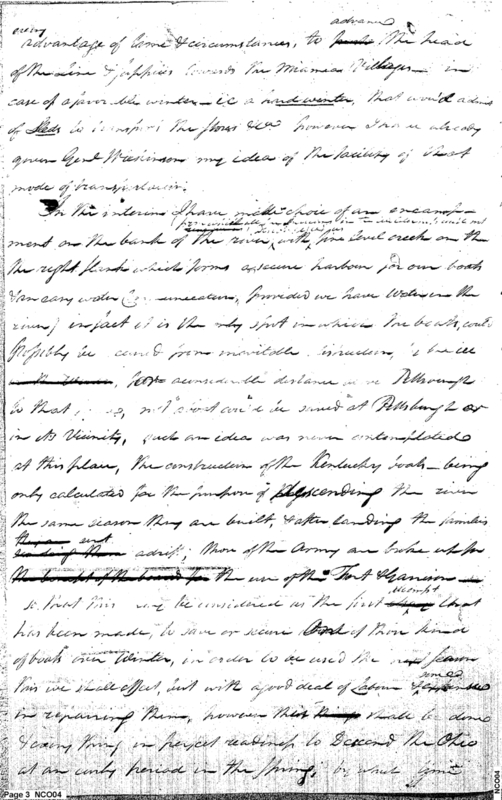 every
advance
advantage of time & circumstances, to the head
of the line & supplies towards the Miamia Villages in
case of a favorable winter – ie a hard winter, that would admit
of Sleds to transport the stores &ca however I have already
given Genl Wilkinson my idea of the facility of that
mode of transportation.
In the interim I have made choice of an encamp
ment on the bank of the river, with, fine level creek on the
the right flank which forms a secure harbour for our boats
& an easy water communication, provided we have water in the
river; in fact it is the only spot in which the boats, could
possibly be saved from inevitable destruction, by the ice
for a considerable distance above Pittsburgh
to that, not a boat could be saved at Pittsburgh or
in its vicinity, such an idea was never contemplated
at this place, the construction of the Kentucky boats – being
only calculated for the purpose of descending the river
the same season they are built, & after landing the families
are sent
adrift; those of the Army are broke up for
the use of the Fort & Garrison
so that this may be considered as the first attempt that
has been made, to save or secure of those kind
of boats over Winter, in order to be used the next season
this we shall effect, but with a good deal of labour & some
in repairing them, however shall be done
& every thing in perfect readiness to Descend the Ohio
at an early period in the Spring; by which time
Page 3 NCO04
NCO04